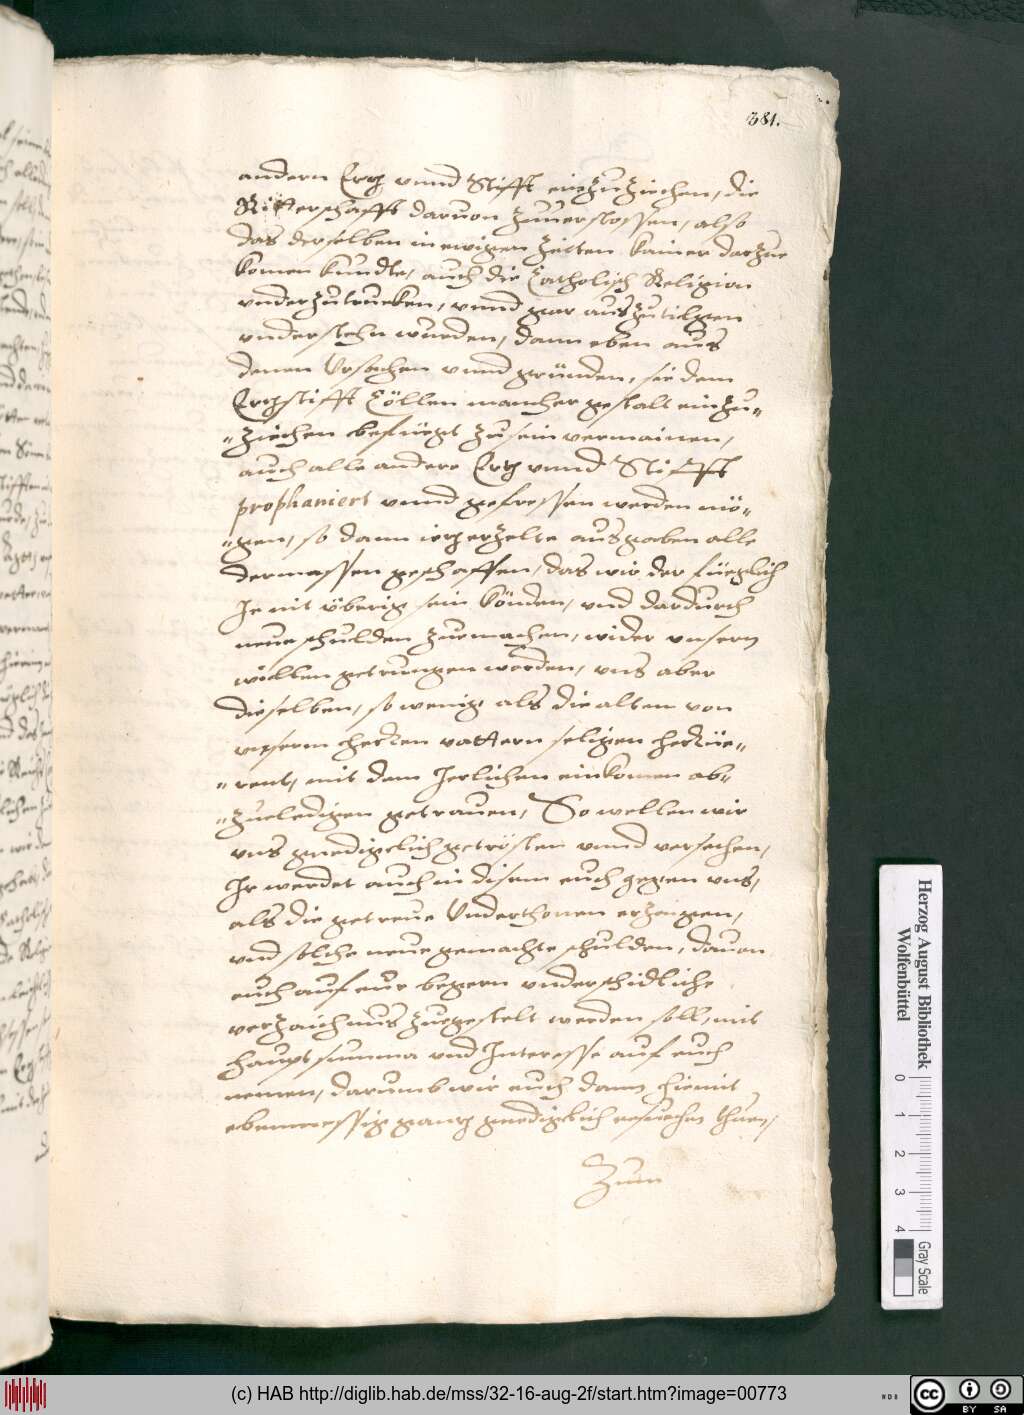 381.
andern Ertz vnnd Stifft einzuziechen, die
Ritterschafft daruon zuuerstossen, also
das derselben in ewigen Zeitten kainer darzue
komen kundte, auch die Catholisch Religion
vnderzutrucken, vnnd gar auszutilgen
vnderstehn wurden, dann eben aus
denen Vrsachen vnnd gründen, sie dem
Ertzstifft Cöllen mancher gestalt einzu„
„ziechen befüegt zu sein vermainen,
auch alle andere Ertz vnnd Stifft
prophaniert vnnd gefressen werden mö„
„gen, so dann ietz erzelte ausgaben alle
dermassen geschaffen, das wir der füeglich
Je nit überig sein könden, vnd dardurch
neue schulden zuemachen, wider vnsern
willen getrungen worden, vns aber
dieselben, so wenig als die alten von
vnserm herren vattern seligen herrüe„
„rent, mit dem Jerlichen einkomen ab„
„zueledigen getrauen, So wellen wir
vns gnedigclich getrösten vnnd versechen,
Ir werdet auch in disem euch gegen vns,
als die getreue Vnderthonen erzeigen,
vnd solche neue gemachte schulden, dauon
euch auf eur begern vnderschidliche
verzaichnus zuegestelt werden soll, mit
haupt summa vnd Interesse auf euch
nemen, darumb wir euch dann hiemit
ebenmessig gantz gnedigclich ersuechen thuen,
Zum
Herzog August Bibliothek
Wolfenbüttel
0 1 2 3 4
Gray Scale
(c) HAB http://diglib.hab.de/mss/32-16-aug-2f/start.htm?image=00773
cc BY SA